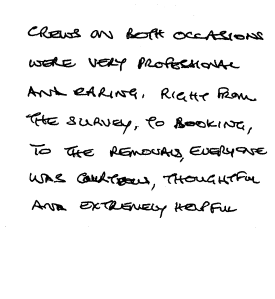 CREWS ON BOTH OCCASIONS
WERE VERY PROFESSIONAL
AND CARING. RIGHT FROM
THE SURVEY, TO BOOKING,
TO THE REMOVALS, EVERYONE
WAS COURTEOUS, THOUGHTFUL
AND EXTREMELY HELPFUL